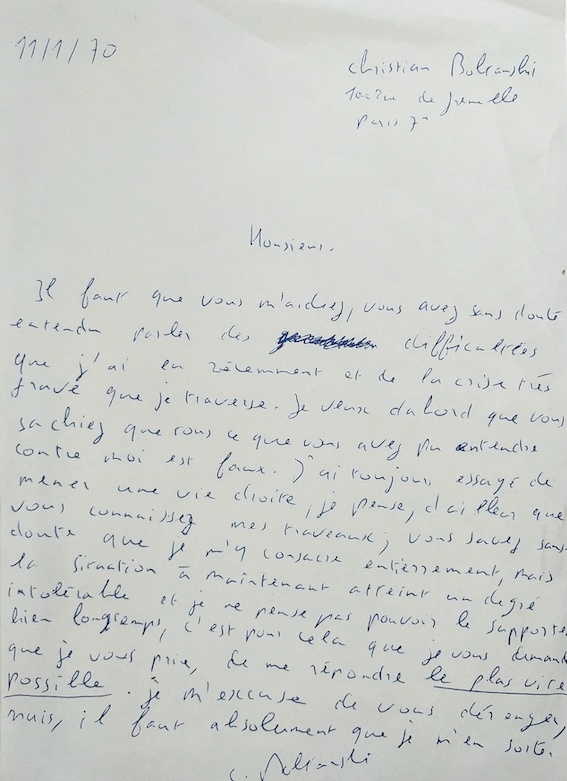 11/1/70
Christian Boltanski
100 rue de Grenelle
Paris 7
Monsieur.
Il faut que vous m'aidiez, vous avez sans doute
entendu parler des difficultées
que j'ai eu récemment et de la crise très
grave que je traverse. Je veux dabord que vous
sachiez que tous ce que vous avez pu entendre
contre moi est faux. J'ai toujours essayé de
mener une vie droite, je pense, d'ailleur que
vous connaissez mes traveaux ; vous savez sans
doute que je m'y consacre entièrrement, mais
la situation a maintenant atteint un degré
intolérable et je ne pense pas pouvoir le supporter
bien longtemps, c'est pour cela que je vous demande
que je vous prie, de me répondre le plus vite
possible. je m'excuse de vous déranger,
mais, il faut absolument que je m'en sorte.
C. Boltanski